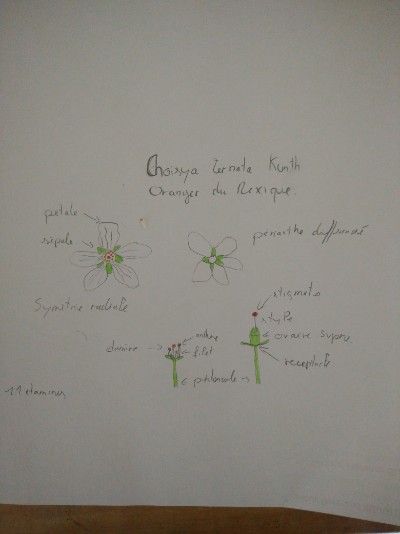 Choisya ternata Kunth
Oranger du Mexique.
pétale
sépale
périanthe différencié
Symétrie radiale
stigmate
style
ovaire supère
réceptacle
anthère
filet
étamine
pédoncule
11 étamines